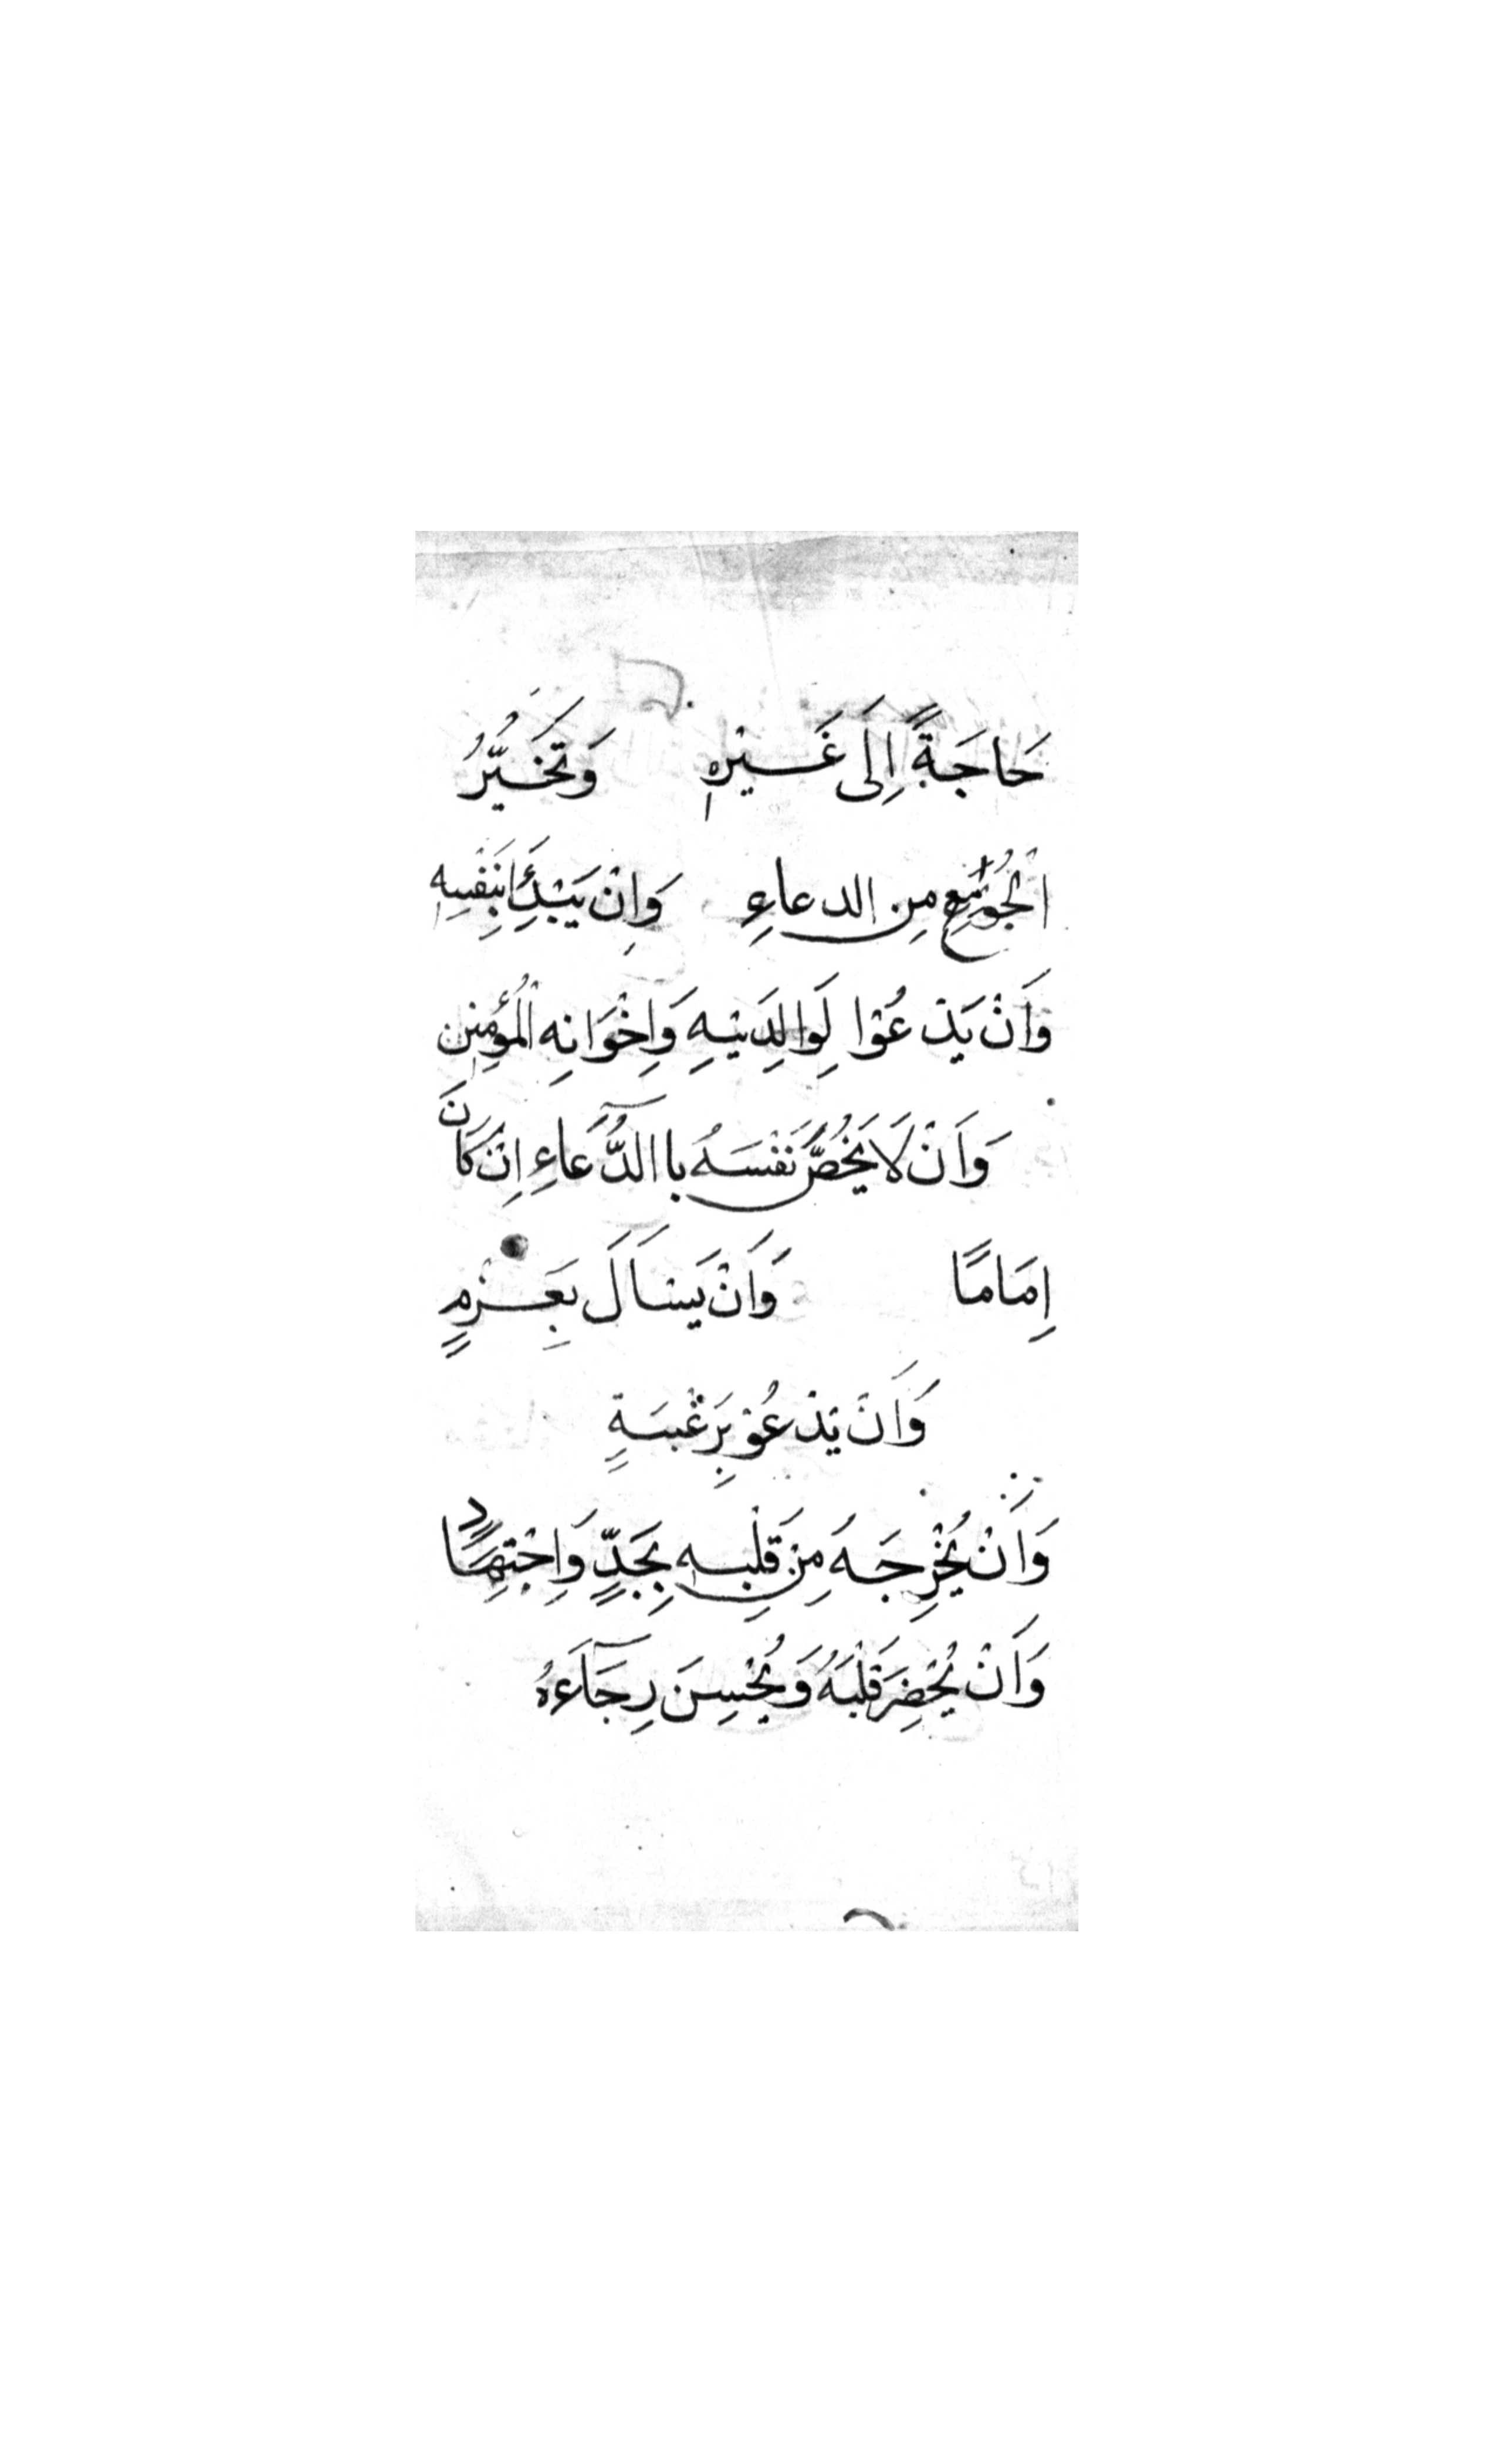 حَاجَةً اِلَى غَيْرِهِ وَتَخَيُّرُ
الْجُوَمِع مِن الدعاءِ وَاِنْ يَبْدَأَ بِنَفْسِهِ
وَاَنْ يَدْعُوْا لِوَالِدَيْهِ وَاِخْوَانِهِ الْمُؤْمِنِن
وَاَنْ لَا يَخُصَّ نَفْسَهُ بِاالدُّعَآءِ اِنْ كَانَ
اِمَامًا وَاَنْ يَسْاَلَ بِعَزْمٍ
وَاَنْ يَدْعُوْ بِرَغْبَةٍ
وَاَنْ يُخْرِجَهُ مِنْ قَلْبِهِ بِجَدٍّ وَاِجْتِهَادٍ
وَاَنْ يُحْضِرَ قَلْبَهُ وَيُحْسِنَ رِجَآءَهُ